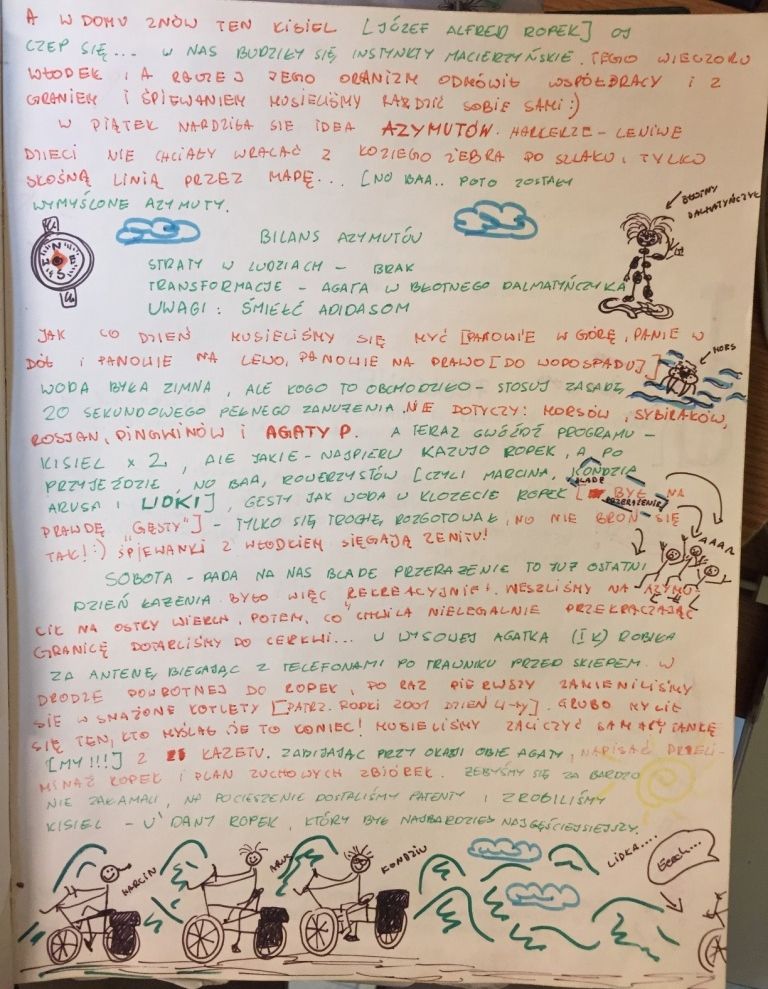 A W DOMU ZNÓW TEN KISIEL [JÓZEF ALFRED ROPEK] OJ
CZEP SIĘ... W NAS BUDZIŁY SIĘ INSTYNKTY MACIERZYŃSKIE. TEGO WIECZORU
WŁODEK I A RACZEJ JEGO ORGANIZM ODMÓWIŁ WSPÓŁPRACY I Z
GRANIEM I ŚPIEWANIEM MUSIELIŚMY RADZIĆ SOBIE SAMI :)
W PIĄTEK NARDZIŁA SIĘ IDEA AZYMUTÓW. HARCERZE - LENIWE
DZIECI NIE CHCIAŁY WRACAĆ Z KOZIEGO ŻEBRA PO SZLAKU, TYLKO
SKOŚNĄ LINIĄ PRZEZ MAPĘ... [NO BAA.. POTO ZOSTAŁY
WYMYŚLONE AZYMUTY.
BŁOTNY
DALMATYŃCZYK
N E S
BILANS AZYMUTÓW
STRATY W LUDZIACH - BRAK
TRANSFORMACJE - AGATA W BŁOTNEGO DALMATYŃCZYKA
UWAGI : ŚMIERĆ ADIDASOM
JAK CO DZIEŃ MUSIELIŚMY SIĘ MYĆ [PANOWIE W GÓRĘ, PANIE W
DÓŁ I PANOWIE NA LEWO, PANOWIE NA PRAWO [DO WODOSPADU].]
MORS
WODA BYŁA ZIMNA, ALE KOGO TO OBCHODZIŁO - STOSUJ ZASADĘ
20 SEKUNDOWEGO PEŁNEGO ZANUŻENIA. NIE DOTYCZY: MORSÓW, SYBIRAKÓW,
ROSJAN, PINGWINÓW I AGATY P. A TERAZ GWÓŹDŹ PROGRAMU -
KISIEL x 2, ALE JAKIE - NAJPIERW KAZUJO ROPEK, A PO
PRZYJEŹDZIE, NO BAA, ROWERZYSTÓW [CZYLI MARCINA, KONDZIA
ARUSA I LIDKI], GĘSTY JAK WODA W KLOZECIE ROPEK [BYŁ NA
BLADE
PRZERAŻENIE
PRAWDĘ "GĘSTY"] - TYLKO SIĘ TROCHĘ ROZGOTOWAŁ, NO NIE BROŃ SIĘ
TAK! :) ŚPIEWANKI Z WŁODKIEM SIĘGAJĄ ZENITU!
AAAA
SOBOTA - PADA NA NAS BLADE PRZERAŻENIE TO JUŻ OSTATNI
DZIEŃ ŁAŻENIA. BYŁO WIĘC REKREACYJNIE. WESZLIŚMY NA AZYMU-
CIK NA OSTRY WIERCH, POTEM, CO CHWILA NIELEGALNIE PRZEKRACZAJĄC
GRANICĘ DOTARLIŚMY DO CERKWI... W WYSOWEJ AGATKA (I K) ROBIŁA
ZA ANTENĘ, BIEGAJĄC Z TELEFONAMI PO TRAWNIKU PRZED SKLEPEM. W
DRODZE POWROTNEJ DO ROPEK, PO RAZ PIERWSZY ZAMIENILIŚMY
SIĘ W SMAŻONE KOTLETY [PATRZ. ROPKI 2001 DZIEŃ 4-TY]. GRUBO MYLIŁ
SIĘ TEN, KTO MYŚLAŁ ŻE TO KONIEC! MUSIELIŚMY ZALICZYĆ SAMARYTANKĘ
[MY!!!] Z KAZETU. ZABIJAJĄC PRZY OKAZJI OBIE AGATY, NAPISAĆ PRZELI-
MINAŻ ROPEK I PLAN ZUCHOWYCH ZBIÓREK. ŻEBYŚMY SIĘ ZA BARDZO
NIE ZAŁAMALI, NA POCIESZENIE DOSTALIŚMY PATENTY I ZROBILIŚMY
KISIEL - U'DANY ROPEK, KTÓRY BYŁ NAJBARDZIEJ NAJGĘŚCIEJSIEJSZY.
MARCIN
ARUŚ
KONDZIU
LIDKA....